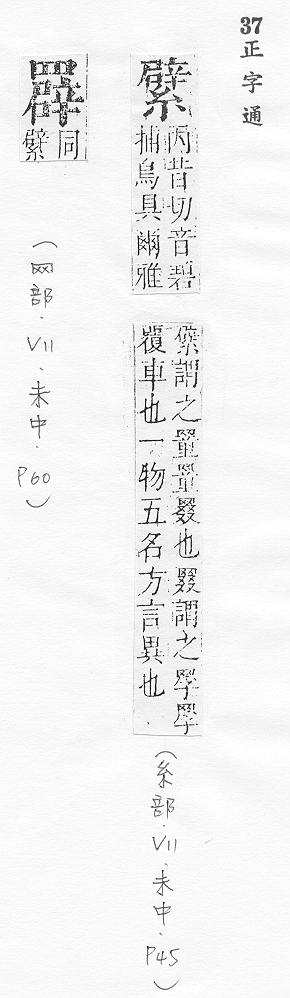 37 正字通
繴
丙昔切音碧
捕鳥具爾雅
繴謂之罿罿罬也罬謂之罦罦
覆車也一物五名方言異也
(糸部．VII．未中．P45)
同
繴
(网部．VII．未中．P60)